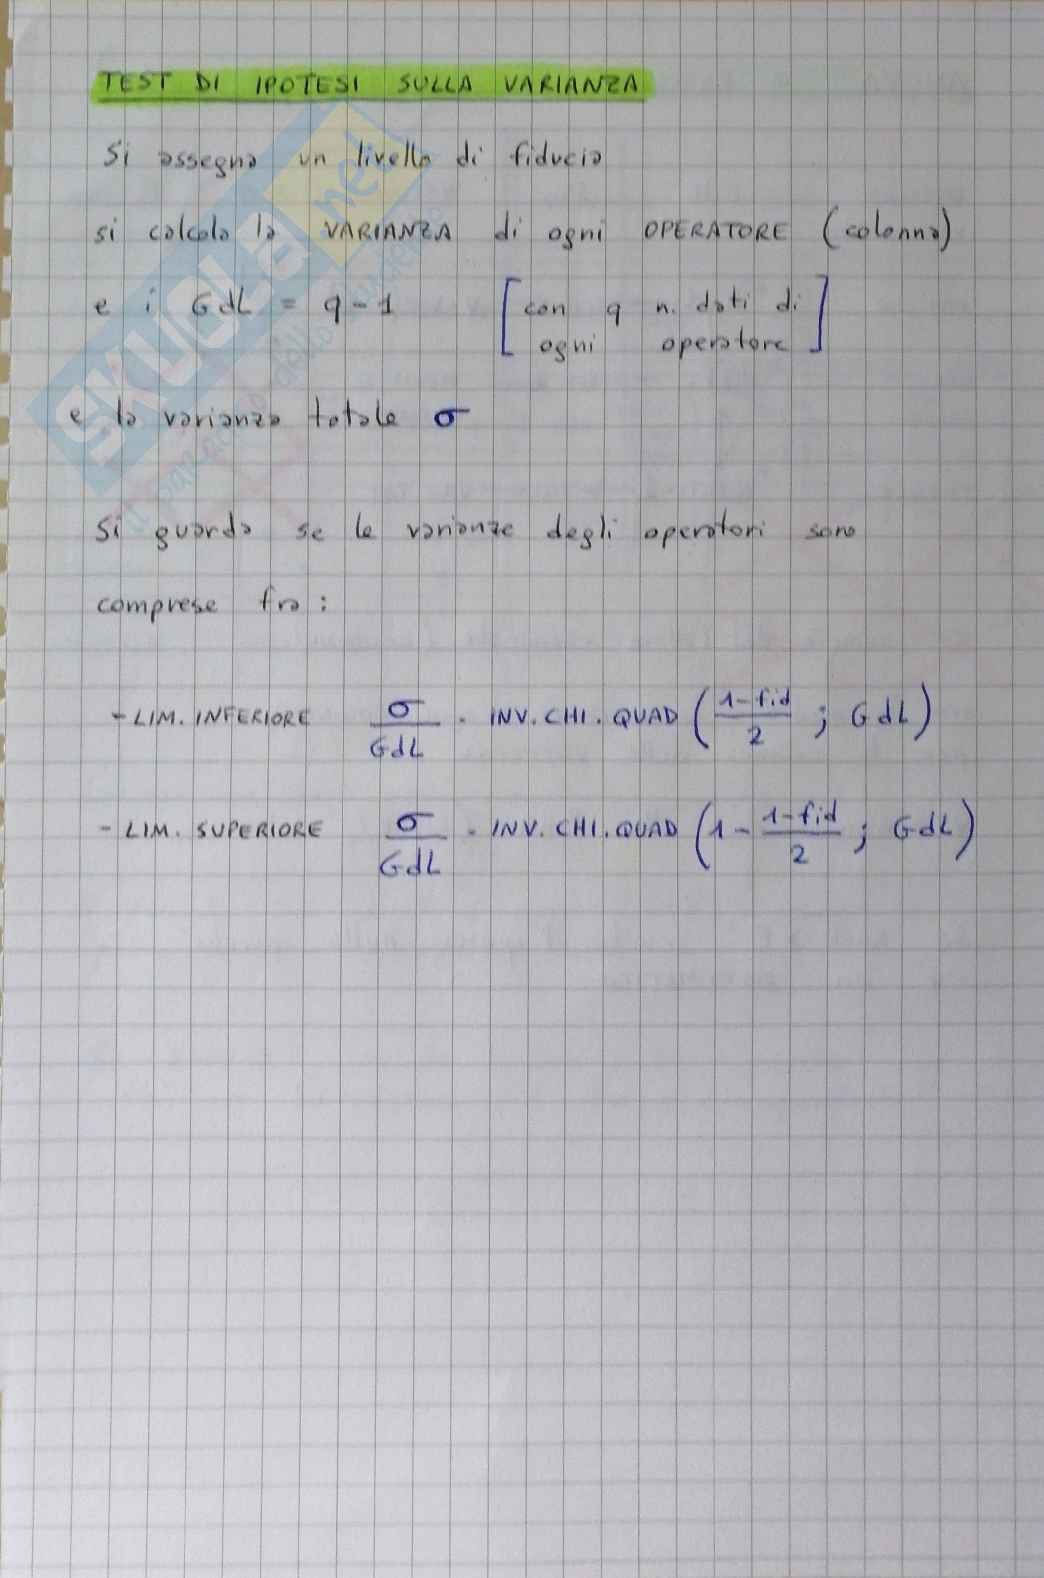 TEST DI IPOTESI SULLA VARIANZA
Si assegna un livello di fiducia
si calcola la VARIANZA di ogni OPERATORE (colonna)
e i GdL = q - 1 [con q n. dati di
ogni operatore]
e la varianza totale σ
Si guarda se le varianze degli operatori sono
comprese fra:
- LIM. INFERIORE σ/GdL · INV. CHI. QUAD (1-fid/2 ; GdL)
- LIM. SUPERIORE σ/GdL · INV. CHI. QUAD (1 - 1-fid/2 ; GdL)
SKUOLA.net